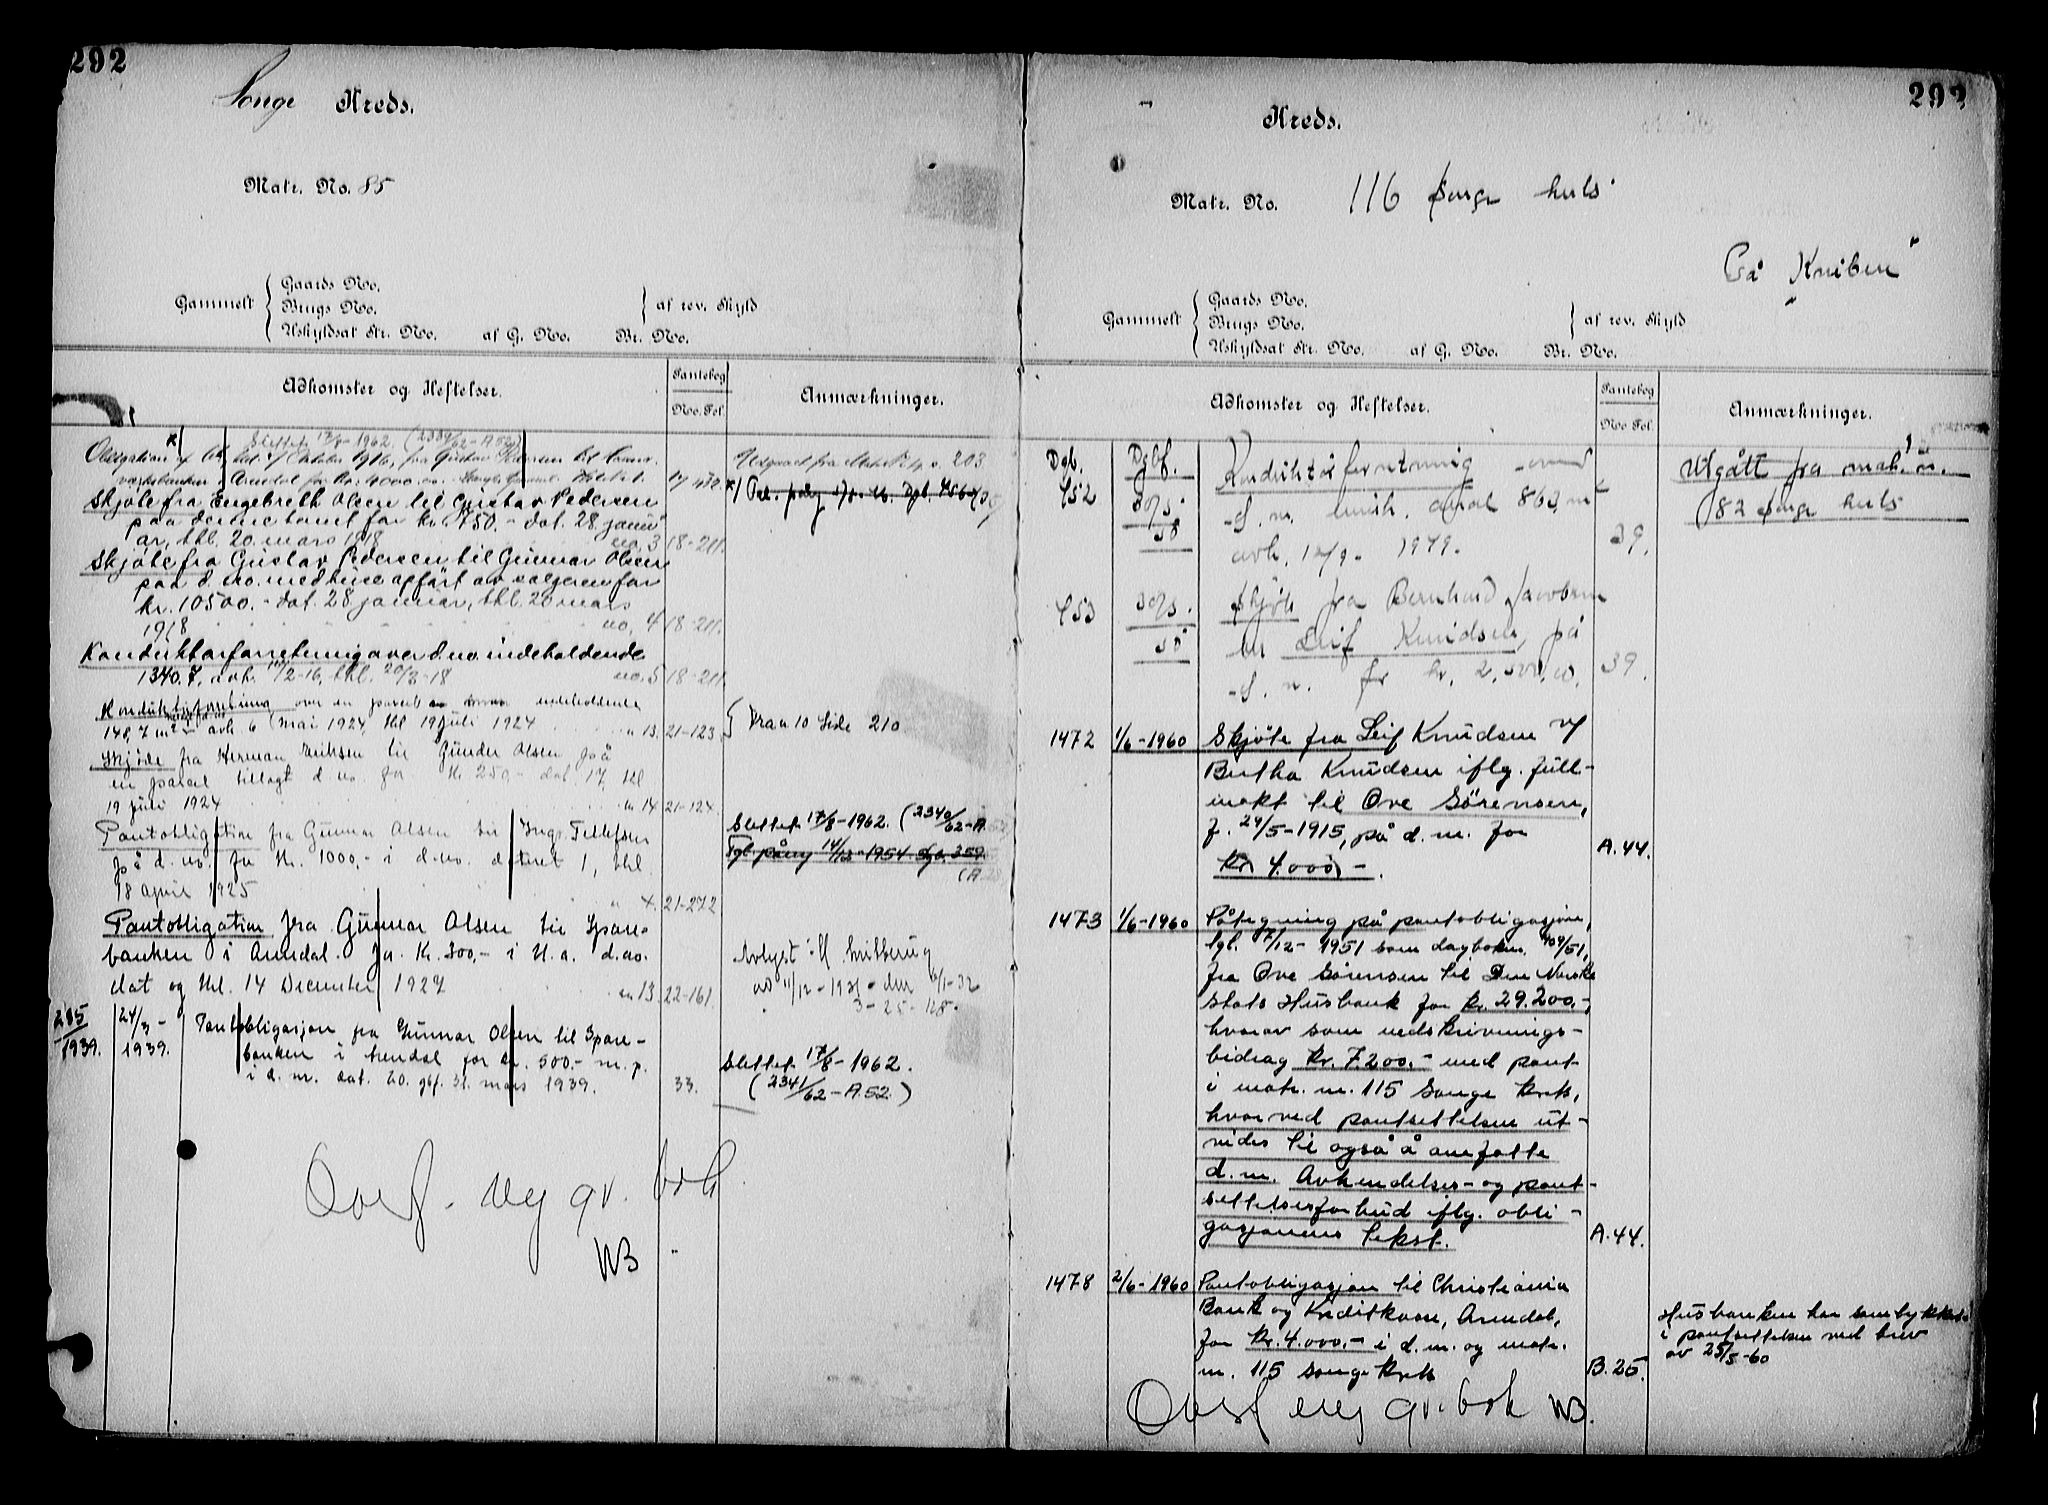 292
Songe Kreds.
Matr. No. 85
Gammelt
Gaards No.
Brugs No.
Uskyldsat Str. No. af G. No. Br. No.
af rev. Skyld
Adkomster og Heftelser.
Pantebog
No. Fol.
Anmærkninger.
Slettet 17/8-1962. (2339/62-A52)
Obligation dat. 7 Oktober 1916, fra Gustav Pedersen til
Arendal for Kr. 4000.00
Skjöte fra Engebreth Olsen til Gustav Pedersen
paa denne tomt for kr. 750.- Dat. 28 janu
ar, thl. 20. mars 1918 no. 3 18-211.
Skjöte fra Gustav Pedersen til Gunnar Olsen
paa d. no. med huse opført av sælgeren for
kr. 10500.- Dat. 28 januar, thl. 20 mars
1918 no. 4 18-211.
Konduktörforretning over d. no. indeholdende
1340.7, avh. 17/2-16, thl. 20/3-18 no. 5 18-211.
Konduktørforretning over en parcel indeholdende
148,7 m² avh 6 Mai 1924, thl 19 juli 1924 n 13. 21-123.
Skjøde fra Herman Eriksen til Gunder Olsen på
en parcel tillagt d. no. for Kr 250,- dat 17, thl
19 juli 1924 n 14 21-124.
Pantobligation fra Gunnar Olsen til Ingv. Tellefsen
på d. no. for Kr. 1000,- i d. no. dateret 1, thl
18 april 1925 4. 21-272
Pantobligation fra Gunnar Olsen til Spare-
banken i Arendal for Kr. 300,- i d. no.
dat og thl. 14 December 1927 n 13. 22-161.
285/1939. 24/3-1939. Pantobligasjon fra Gunnar Olsen til Spare-
banken i Arendal for kr. 500.- m. p.
i d. nr. dat. 20. gbf. 31. mars 1939. 33.
Utgaaet fra Matr. No. 4 s. 203
Fra n 10 Side 210
Slettet 17/8-1962. (2340/62-A.
Tgl. påny 14/12-1954 dgb. 359.
Avlyst
3-25-128.
Slettet 17/8-1962.
(2341/62-A.52.)
Overf. ny gr. bok
292
Kreds.
Matr. No. 116 Songe krets
"På Kniben"
Gammelt
Gaards No.
Brugs No.
Uskyldsat Str. No. af G. No. Br. No.
af rev. Skyld
Adkomster og Heftelser.
Pantebog
No Fol.
Anmærkninger.
Dgb. Dgbf.
952 Konduktørforretning over
d. nr. innh. areal 863 m²
avh. 12/9-1949. 39.
Utgått fra matr. nr.
82 Songe krets
953 Skjøte fra Bernhard Jacobsen
til Leif Knudsen, på
d. n. for kr. 2.500,00. 39.
1472 1/6-1960 Skjöte fra Leif Knudsen v/
Bertha Knudsen iflg. full-
makt til Ove Sörensen,
f. 29/5-1915, på d. nr. for
Kr 4.000,-. A.44.
1473 1/6-1960 Påtegning på pantobligasjon,
tgl. 7/12-1951 som dagboknr.
fra Ove Sörensen til Den Norske
Stats Husbank for kr. 29.200,-,
hvorav som nedskrivnings-
bidrag kr. 7.200.- med pant
i matr. nr. 115 Songe Krets,
hvorved pantsettelsen ut-
vides til også å omfatte
d. nr. Avhendelses- og pant-
settelsesforbud iflg. obli-
gasjonens tekst. A.44.
1478 2/6-1960 Pantobligasjon til Christiania
Bank og Kreditkasse, Arendal,
for kr. 4.000.- i d. nr. og matr.
nr. 115 Songe Krets B.25.
Husbanken har samtykket
i pantsettelsen ved brev
av 25/5-60
Overf ny gr. bok